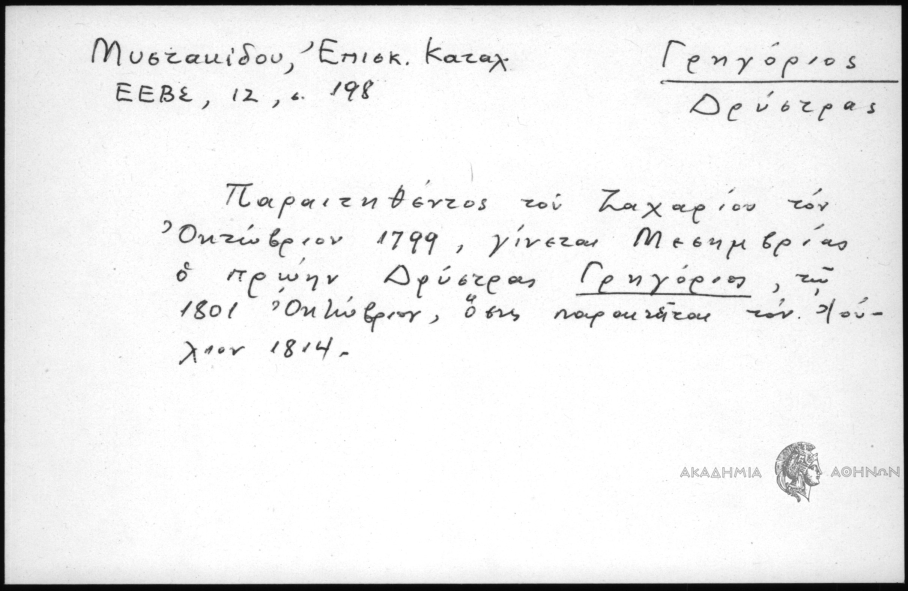 Μυστακίδου, Ἐπισκ. Καταλ
ΕΕΒΣ, 12, σ. 198
Γρηγόριος
Δρύστρας
Παραιτηθέντος τοῦ Ζαχαρίου τόν
Ὀκτώβριον 1799, γίνεται Μεσημβρίας
ὁ πρώην Δρύστρας Γρηγόριος, τῷ
1801 Ὀκτώβριον, ὅστις παραιτεῖται τόν Ἰού-
λιον 1814.
ΑΚΑΔΗΜΙΑ ΑΘΗΝΩΝ